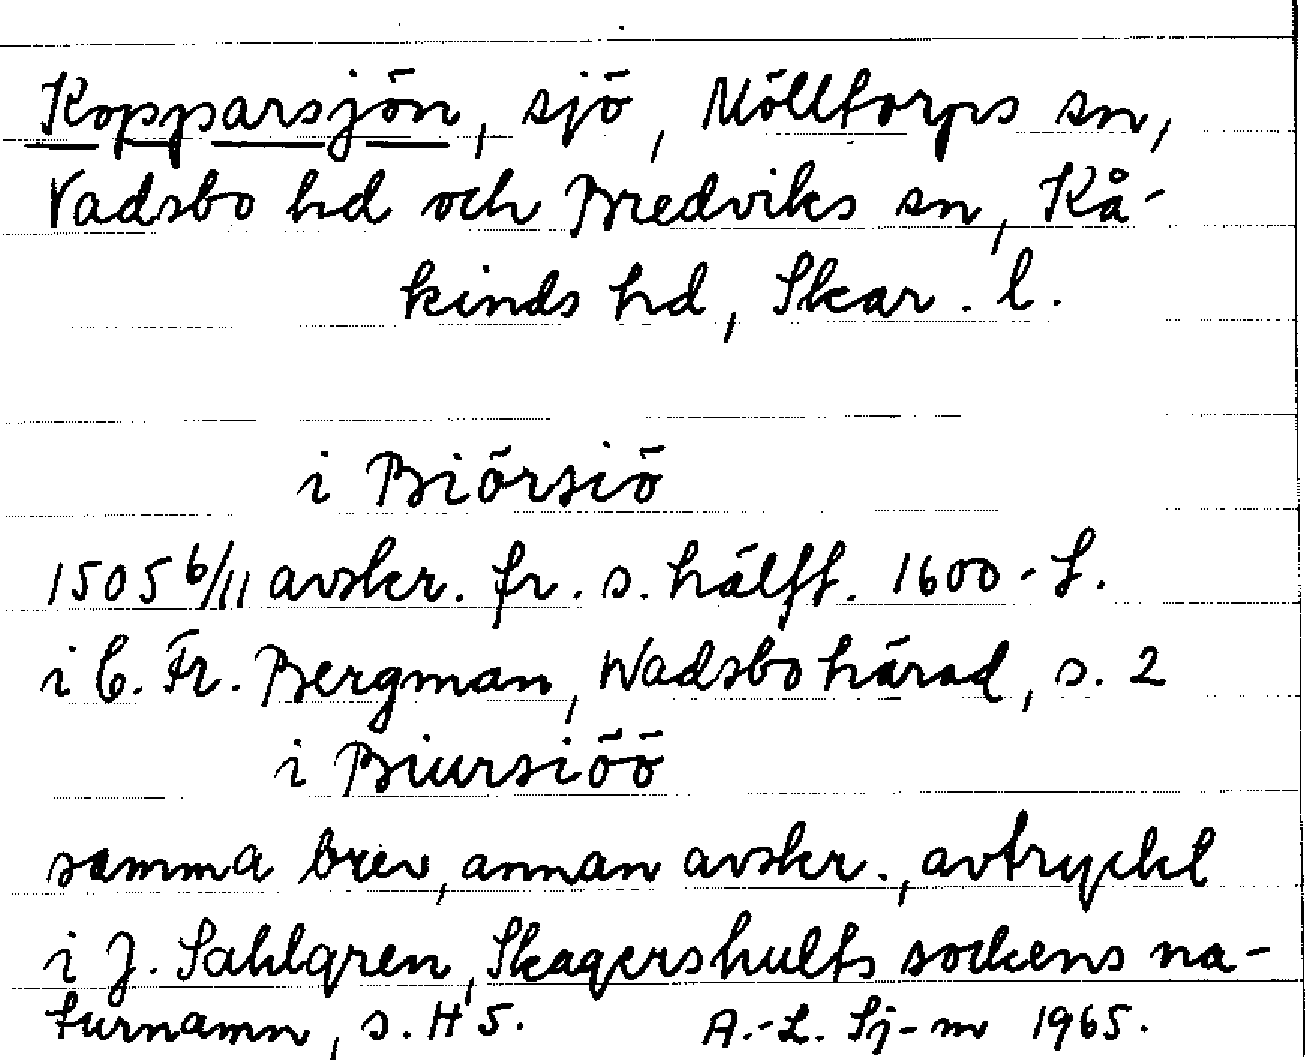 Kopparsjön, sjö, Mölltorps sn,
Vadsbo hd och Bredviks sn, Kå-
kinds hd, Skar. l.
i Biörsiö
1505 6/11 avskr. fr. s. hälft. 1600-t.
i C. Fr. Bergman, Wadsbo härad, s. 2
i Biursiöö
samma brev, annan avskr., avtryckt
i J. Sahlgren, Skagershults sockens na-
turnamn, s. H 5.
A.-L. Sj-m 1965.